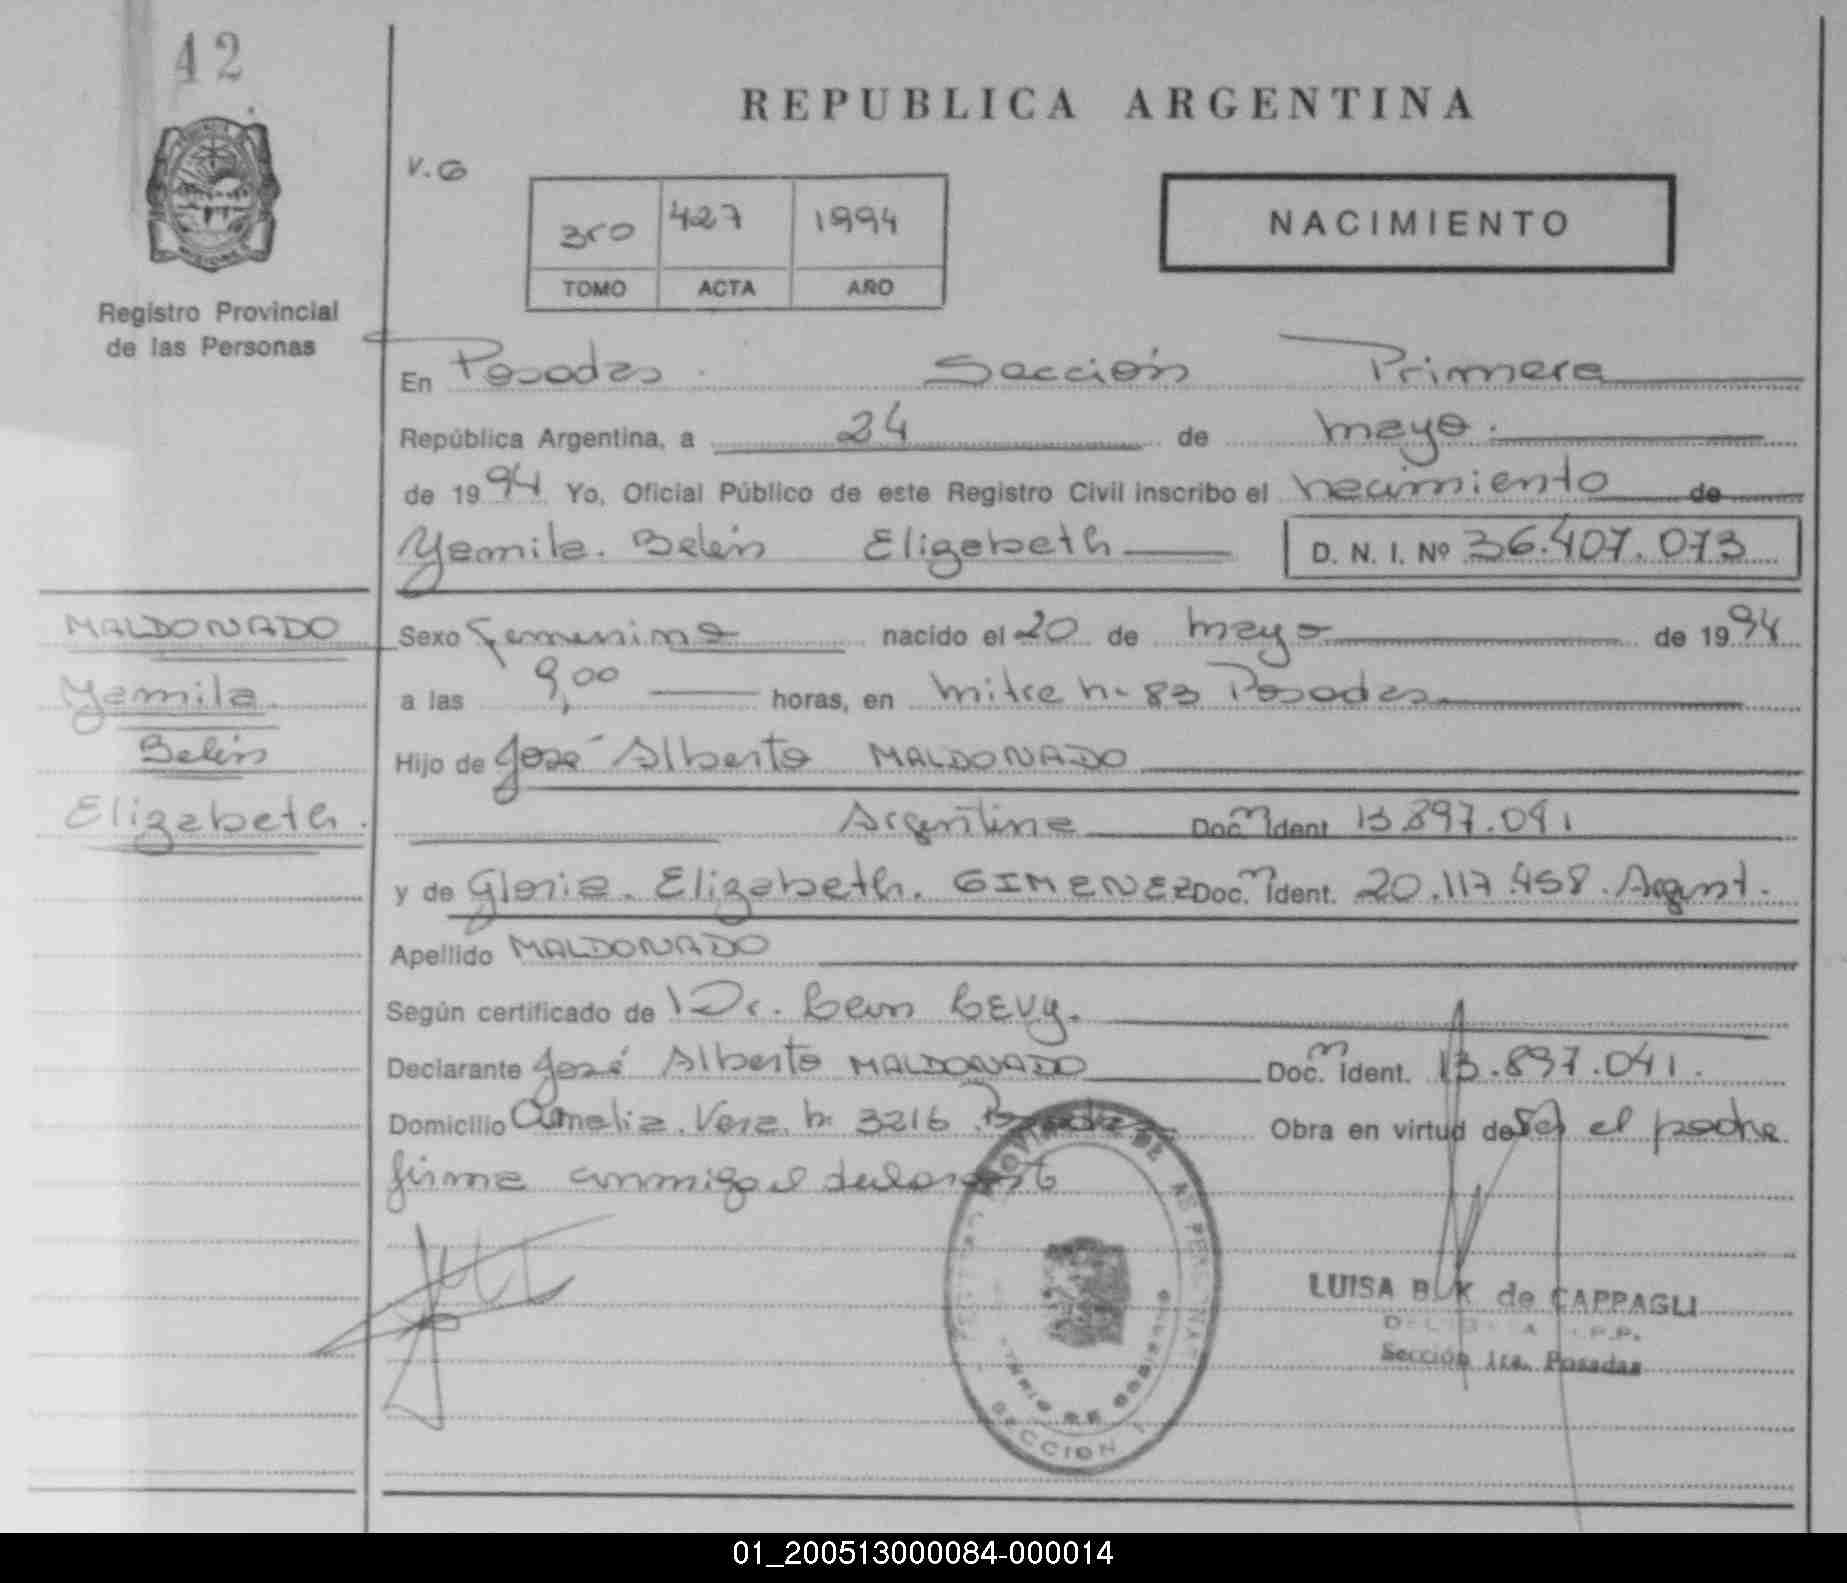 42
REPUBLICA ARGENTINA
V.G
3ro 427 1994
TOMO ACTA AÑO
NACIMIENTO
Registro Provincial
de las Personas
En Posadas. Sección Primera
República Argentina, a 24 de mayo.
de 1994 Yo, Oficial Público de este Registro Civil inscribo el nacimiento de
Yamila. Belén Elizabeth D. N. I. Nº 36.407.073
MALDONADO
Yamila.
Belén
Elizabeth.
Sexo Femenino nacido el 20 de mayo de 1994
a las 9,00 horas, en Mitre n- 83 Posadas.
Hijo de José Alberto MALDONADO
Argentina Doc. Ident 13.897.041
y de Gloria. Elizabeth. GIMENEZ Doc. Ident. 20.117.458. Argent.
Apellido MALDONADO
Según certificado de Dr. LEVY.
Declarante José Alberto MALDONADO Doc. Ident. 13.897.041.
Domicilio Amelia. Vera. n- 3216 Posadas Obra en virtud de Ser el padre
firma conmigo el declarante
SECCION 1
LUISA B. K de CAPPAGLI
Sección 1ra. Posadas
01_200513000084-000014